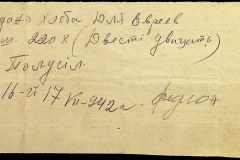 дано хлеба для Евреев
шт. 220 х (Двести двадцать)
Получил
16-го 17 VII-942 г.